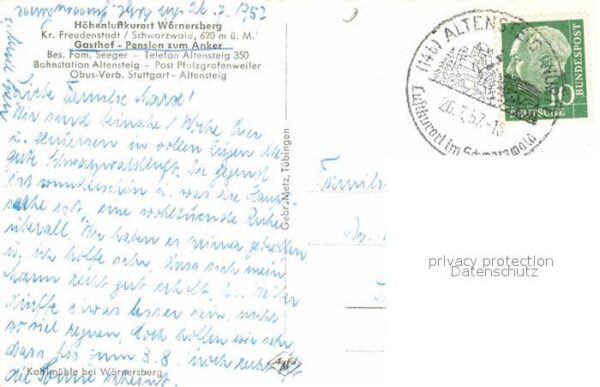 Wörnersberg, 26. 7. 1957
Höhenluftkurort Wörnersberg
Kr. Freudenstadt / Schwarzwald, 620 m ü. M.
Gasthof - Pension zum Anker
Bes. Fam. Seeger - Telefon Altensteig 350
Bahnstation Altensteig - Post Pfalzgrafenweiler
Obus-Verb. Stuttgart - Altensteig
Liebe Familie
Wir sind beinahe 1 Woche hier
u. geniessen in vollen Zügen die
gute Schwarzwaldluft. Die Gegend
ist wunderschön u. was die Haupt-
sache ist, eine wohltuende Ruhe
überall. Wir haben es prima getroffen
u. ich hoffe sehr, dass sich mein
Mann recht gut erholt. Das Wetter
dürfte etwas besser sein, nicht
so viel regnen, doch hoffen wir sehr
dass bis zum 3.8. noch recht
die Sonne scheint.
Kohlmühle bei Wörnersberg
Gebr. Metz, Tübingen
Familie
(14b) ALTENSTEIG
26.7.57-18
Luftkurort im Schwarzwald
DEUTSCHE
BUNDESPOST
10
privacy protection
Datenschutz